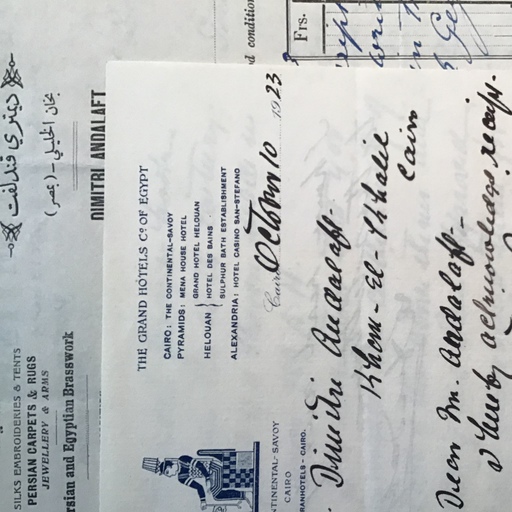 SILKS EMBROIDERIES & TENTS
PERSIAN CARPETS & RUGS
JEWELLERY & ARMS
rsian and Egyptian Brasswork
ديمتري قندلفت
بخان الخليلي – (بمصر)
DIMITRI ANDALAFT
THE GRAND HOTELS Co OF EGYPT
CAIRO: THE CONTINENTAL-SAVOY
PYRAMIDS: MENA HOUSE HOTEL
HELOUAN
GRAND HOTEL HELOUAN
HOTEL DES BAINS
SULPHUR BATH ESTABLISHMENT
ALEXANDRIA: HOTEL CASINO SAN-STEFANO
NTINENTAL-SAVOY
CAIRO
RANHOTELS - CAIRO.
Cairo October 10 1923
d condition
Frs.
Dimitri Andalaft
Khan-El-Khalil
Cairo
Dear Mr. Andalaft-
I hereby acknowledge receipt